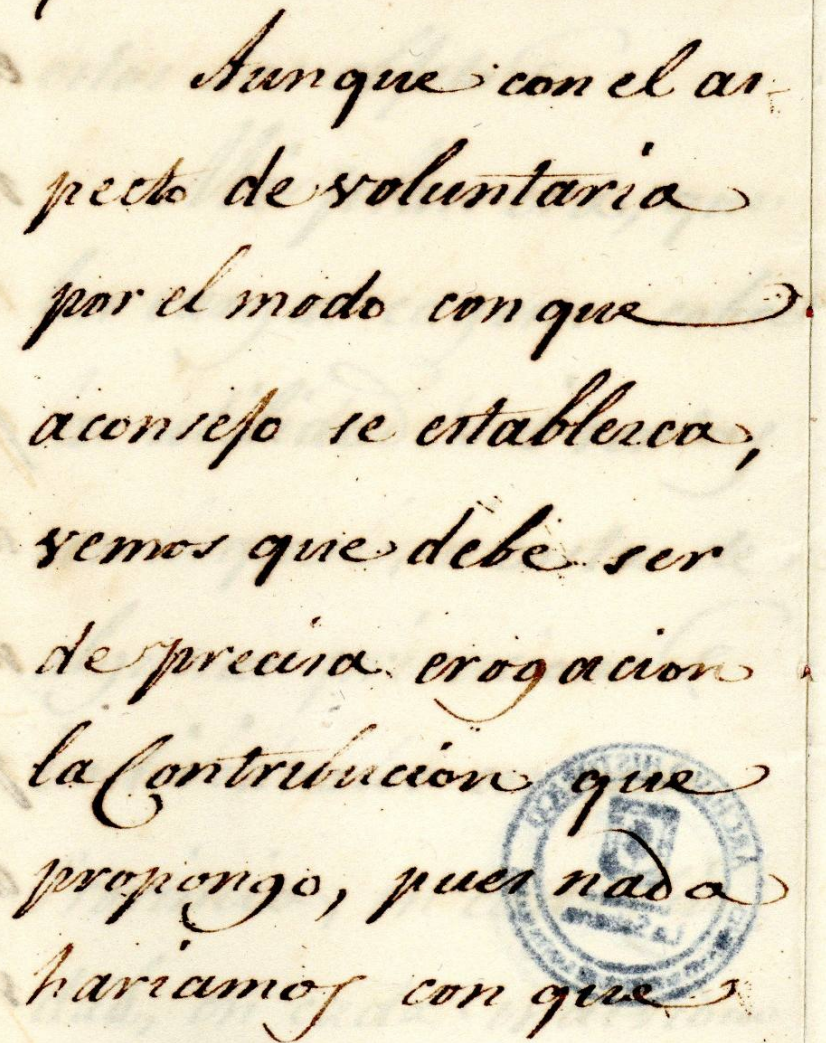 Aunque con el as-
pecto de voluntaria
por el modo con que
aconsejo se establezca,
vemos que debe ser
de precisa erogacion
la Contribucion que
propongo, pues nada
hariamos con que